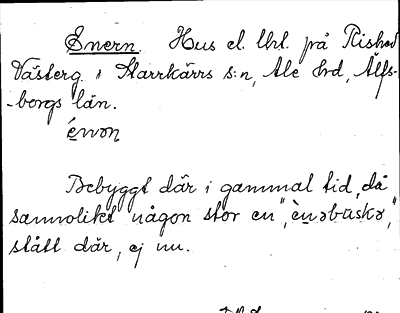 Enern. Hus el. lht. på Rished
Västerg. i Starrkärrs s:n, Ale hrd, Älfs-
-borgs län.
énən
Bebyggt där i gammal tid, då
sannolikt någon stor en "ènəbuskə",
stått där, ej nu.